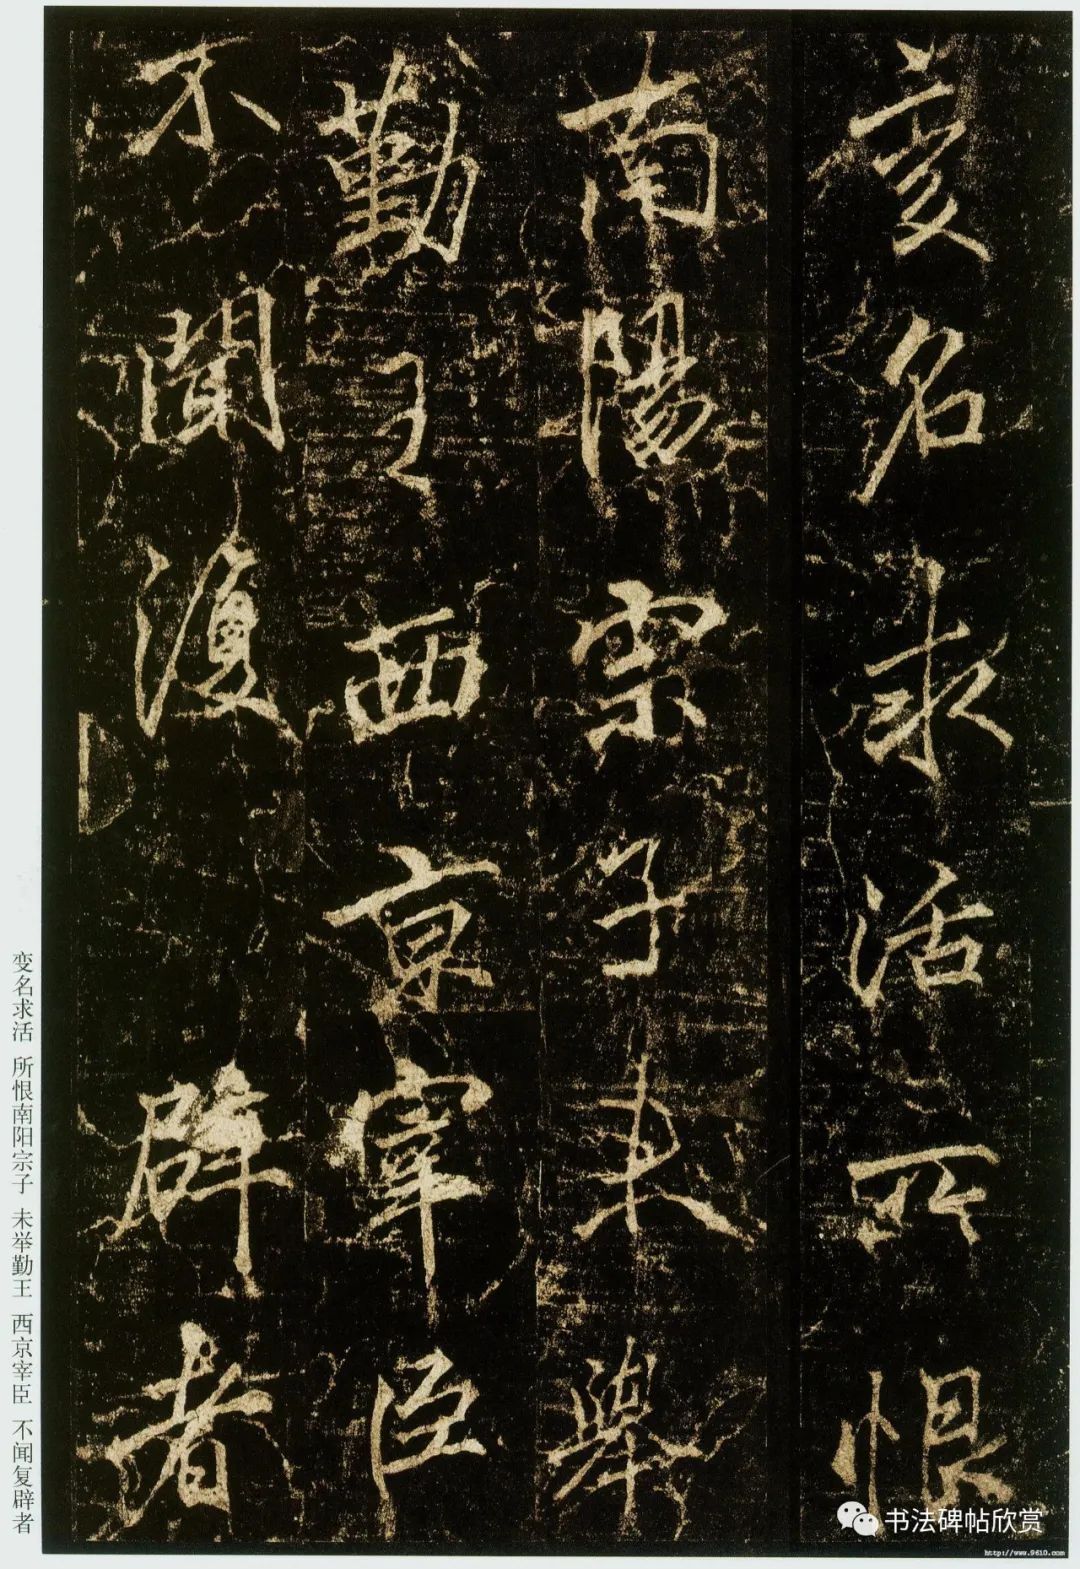 变名求活所恨
南陽宗子未舉
勤王西京宰臣
不聞復辟者
变名求活 所恨南阳宗子 未举勤王 西京宰臣 不闻复辟者
书法碑帖欣赏
http://www.9610.com